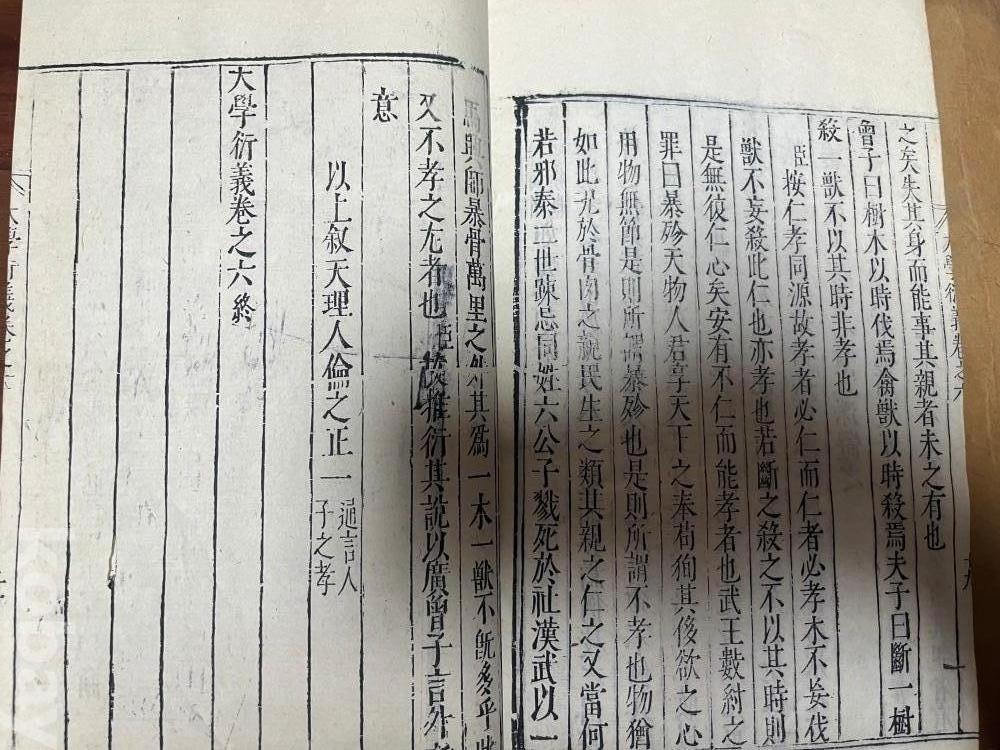 之矣失其身而能事其親者未之有也
曾子曰樹木以時伐焉禽獸以時殺焉夫子曰斷一樹
殺一獸不以其時非孝也
臣按仁孝同源故孝者必仁而仁者必孝木不妄伐
獸不妄殺此仁也亦孝也若斷之殺之不以其時則
是無復仁心矣安有不仁而能孝者也武王數紂之
罪曰暴殄天物人君享天下之奉苟徇其侈欲之心
用物無節是則所謂暴殄也是則所謂不孝也物猶
如此尤於骨肉之親民生之類其親之仁之又當何
若邪秦二世踈忌同姓六公子戮死於社漢武以一
馬興師暴骨萬里之外其為一木一獸不旣多乎
又不孝之尤者也臣 推衍其說以廣曾子言外
意
以上敘天理人倫之正一 通言人子之孝
大學衍義卷之六 終
大學衍義卷之六